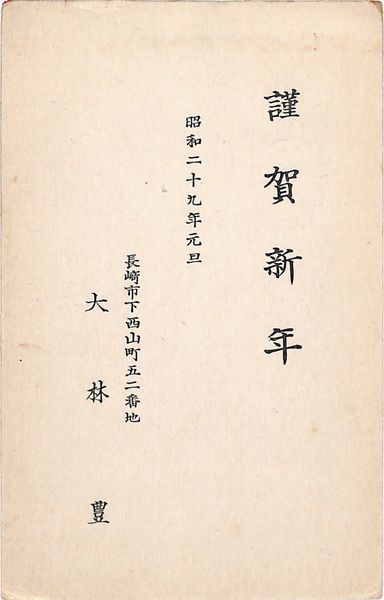 謹賀新年
昭和二十九年元旦
長崎市下西山町五二番地
大林豊